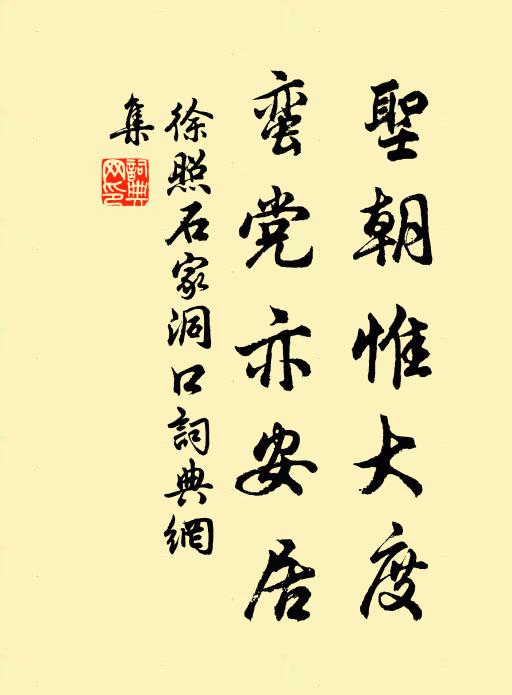 聖朝惟大度
蛮党亦安居
徐照石家洞口詞典網
集
詞典網印